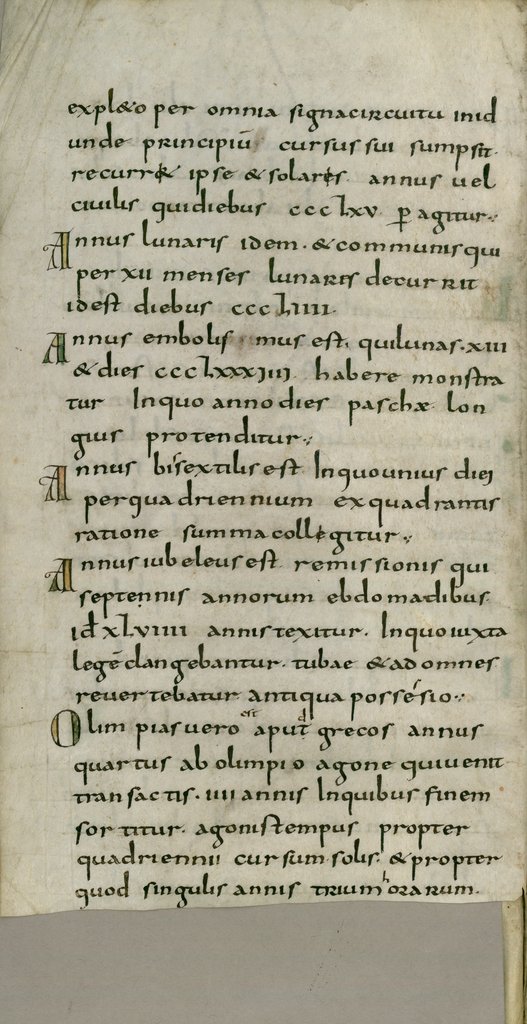 expl&o per omnia signa circuitu inid
unde principiū cursus sui sumpsit.
recurr& ipse & solaris annus uel
ciuilis qui diebus ccclxv p agitur.
Annus lunaris idem. & communis qui
per xii menses lunares decurrit
id est diebus cccliiii.
Annus embolis mus est. qui lunas. xiii
& dies ccclxxxiiii habere monstra
tur In quo anno dies paschæ lon
gius protenditur.
Annus bissextilis est In quo unius diei
per quadriennium ex quadrantis
ratione summa collegitur.
Annus iubeleus est remissionis qui
septennis annorum ebdomadibus
id xlviiii annis texitur. In quo iuxta
legē clangebantur. tubae & ad omnes
reuertebatur antiqua possessio.
Olimpias uero est aput grecos annus
quartus ab olimpio agone qui uenit
transactis. iiii annis In quibus finem
sortitur. agonis tempus propter
quadriennii cursum solis. & propter
quod singulis annis trium horarum.